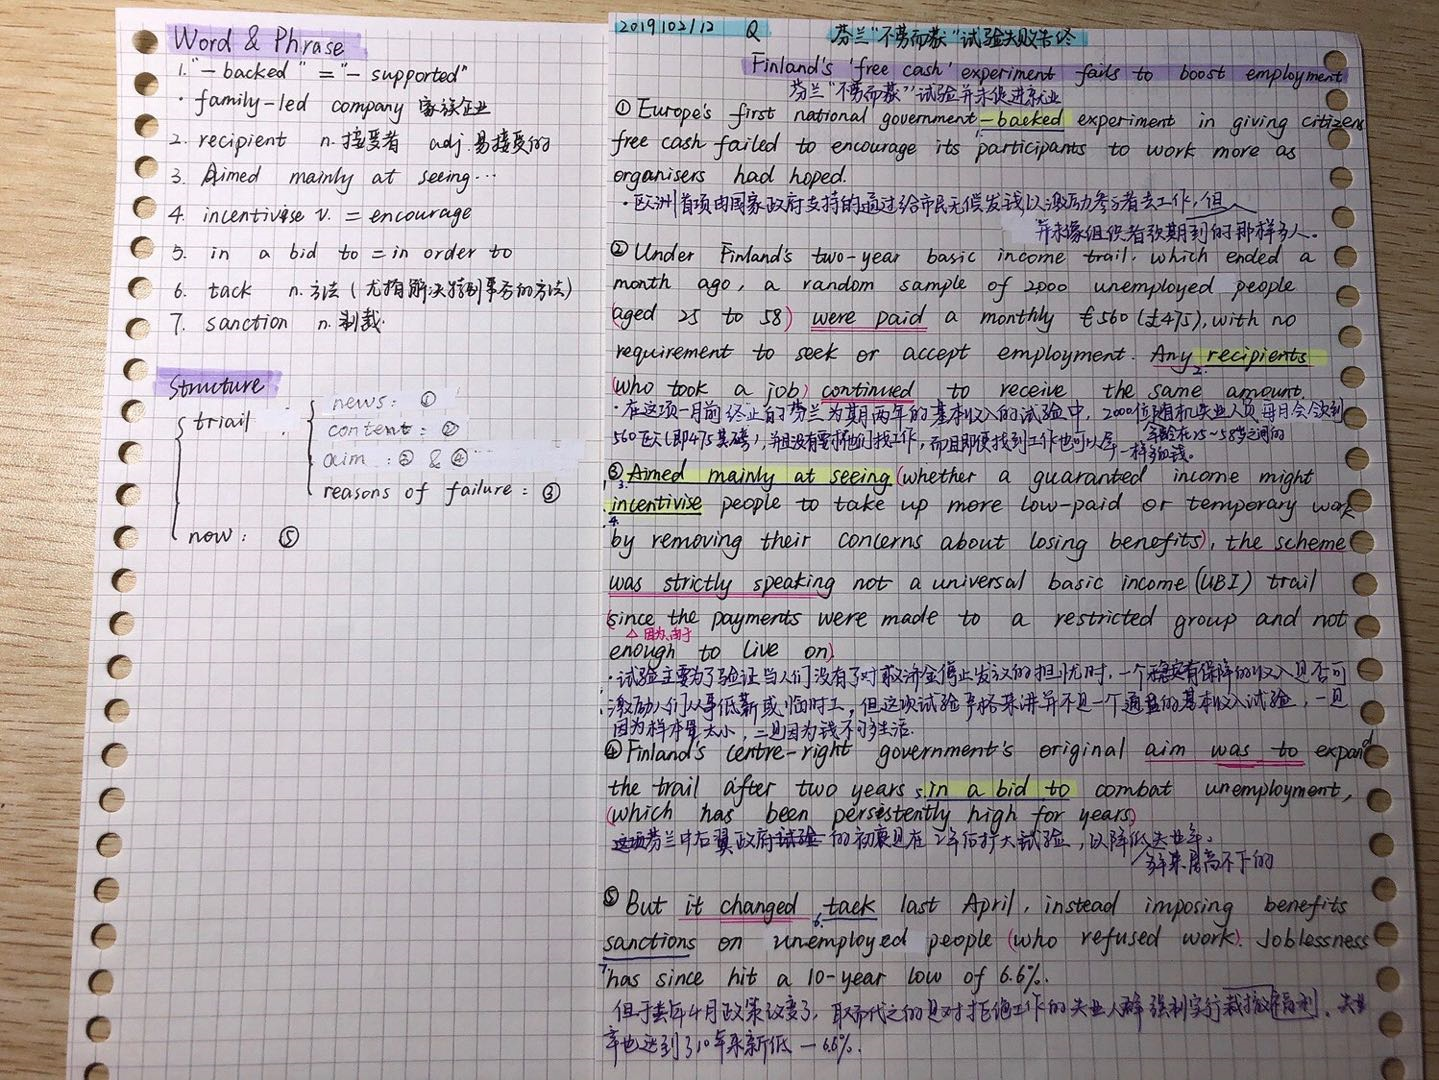 Word & Phrase
1. "-backed" = "-supported"
· family-led company 家族企业
2. recipient n. 接受者 adj. 易接受的
3. Aimed mainly at seeing...
4. incentivise v. = encourage
5. in a bid to = in order to
6. tack n. 方法(尤指解决特别事务的方法)
7. sanction n. 制裁.
Structure
triail
news: ①
content: ②
aim: ③ & ④
reasons of failure: ③
now: ⑤
2019/02/12 Q 芬兰"不劳而获"试验失败告终
Finland's 'free cash' experiment fails to boost employment
芬兰"不劳而获"试验并未促进就业
① Europe's first national government-backed experiment in giving citizens
free cash failed to encourage its participants to work more as
organisers had hoped.
·欧洲首项由国家政府支持的通过给市民无偿发钱以激励参与者去工作,但
并未像组织者预期到的那样多人。
② Under Finland's two-year basic income trail, which ended a
month ago, a random sample of 2000 unemployed people
(aged 25 to 58) were paid a monthly €560 (£475), with no
requirement to seek or accept employment. Any recipients
2.
(who took a job) continued to receive the same amount.
·在这项一月前终止的芬兰为期两年的基本收入的试验中, 2000位随机失业人员每月会领到
年龄在25~58岁之间的
560欧(即475英磅),并且没有要求他们找工作,而且即便找到工作也可以拿一样多的钱。
③ Aimed mainly at seeing (whether a guaranted income might
3.
incentivise people to take up more low-paid or temporary work
4.
by removing their concerns about losing benefits), the scheme
was strictly speaking not a universal basic income (UBI) trail
(since the payments were made to a restricted group and not
△ 因为,由于
enough to live on)
·试验主要为了验证当人们没有了对救济金停止发放的担忧时,一个稳定有保障的收入是否可
激励人们从事低薪或临时工,但这次试验严格来讲并不是一个通盘的基本收入试验,一是
因为样本量太小,二是因为钱不够生活.
④ Finland's centre-right government's original aim was to expand
the trail after two years 5. in a bid to combat unemployment,
(which has been persistently high for years)
芬兰中右翼政府的初衷是在2年后扩大试验,以降低失业率。
多年来居高不下的
⑤ But it changed tack last April, instead imposing benefits
6.
sanctions on unemployed people (who refused work). Joblessness
7.
has since hit a 10-year low of 6.6%.
但于去年4月政策改变了,取而代之的是对拒绝工作的失业人群强制实行裁撤福利。失业
率也达到了10年来新低—6.6%.